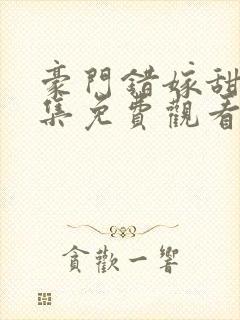 豪門錯嫁甜
集免費觀看
貪歡一響